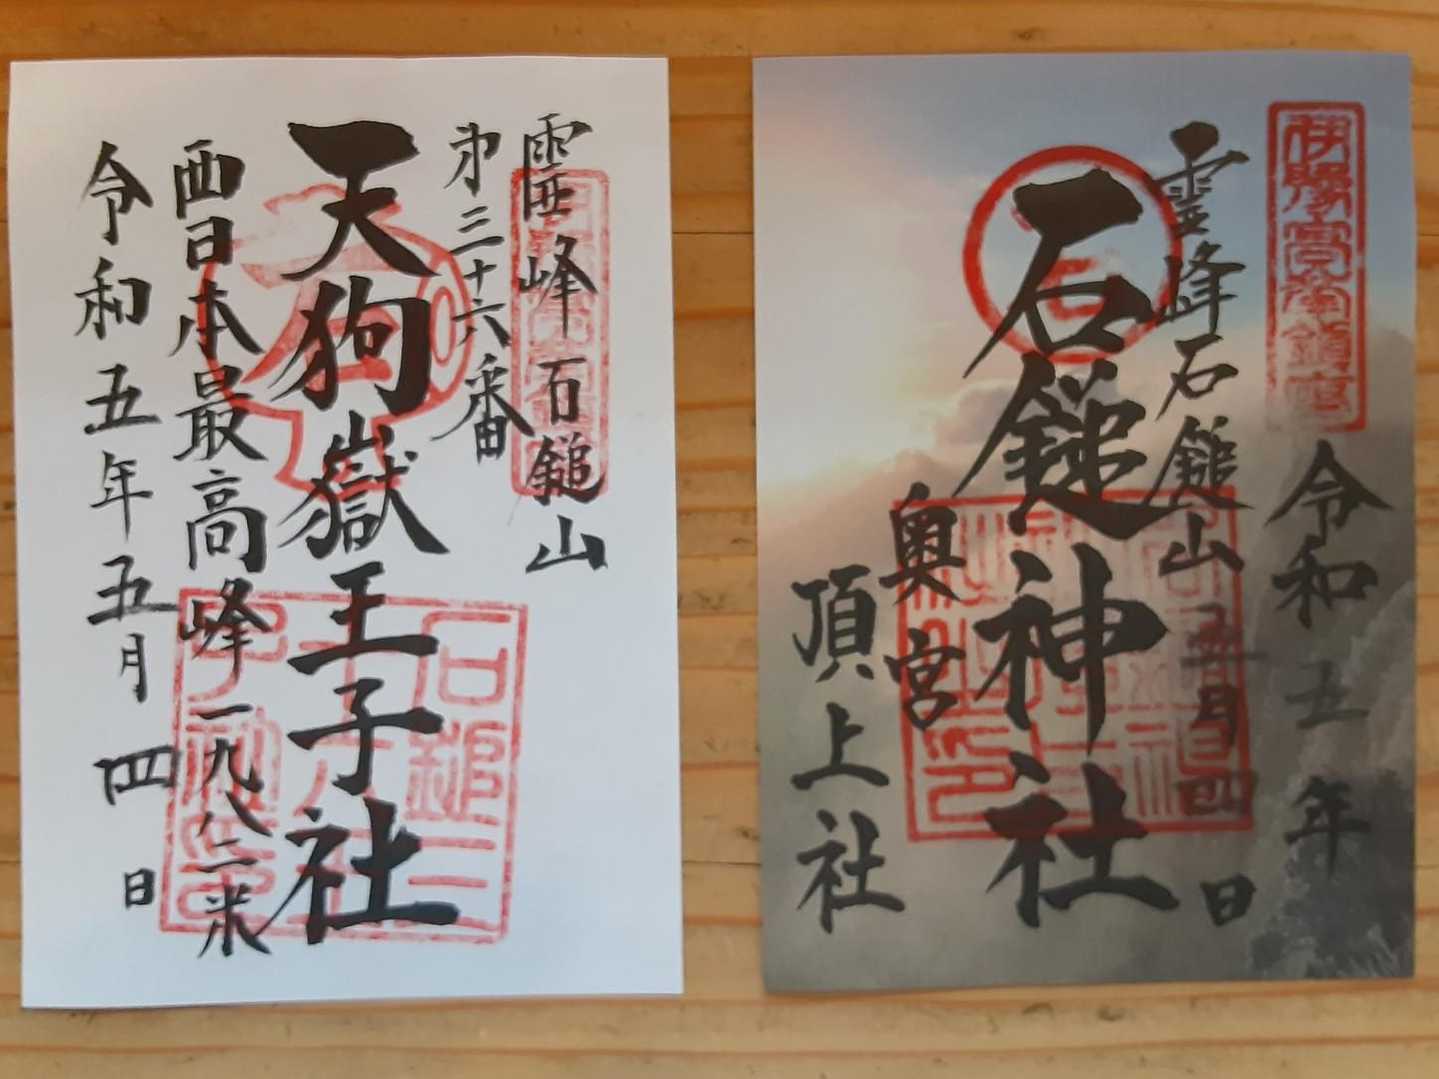 靈峰石鎚山
㐧三十六番
天狗嶽王子社
西日本最高峰一九八二米
令和五年五月四日
伊豫之高嶺鎮座
令和五年
五月四日
霊峰石鎚山
石鎚神社
奥宮
頂上社